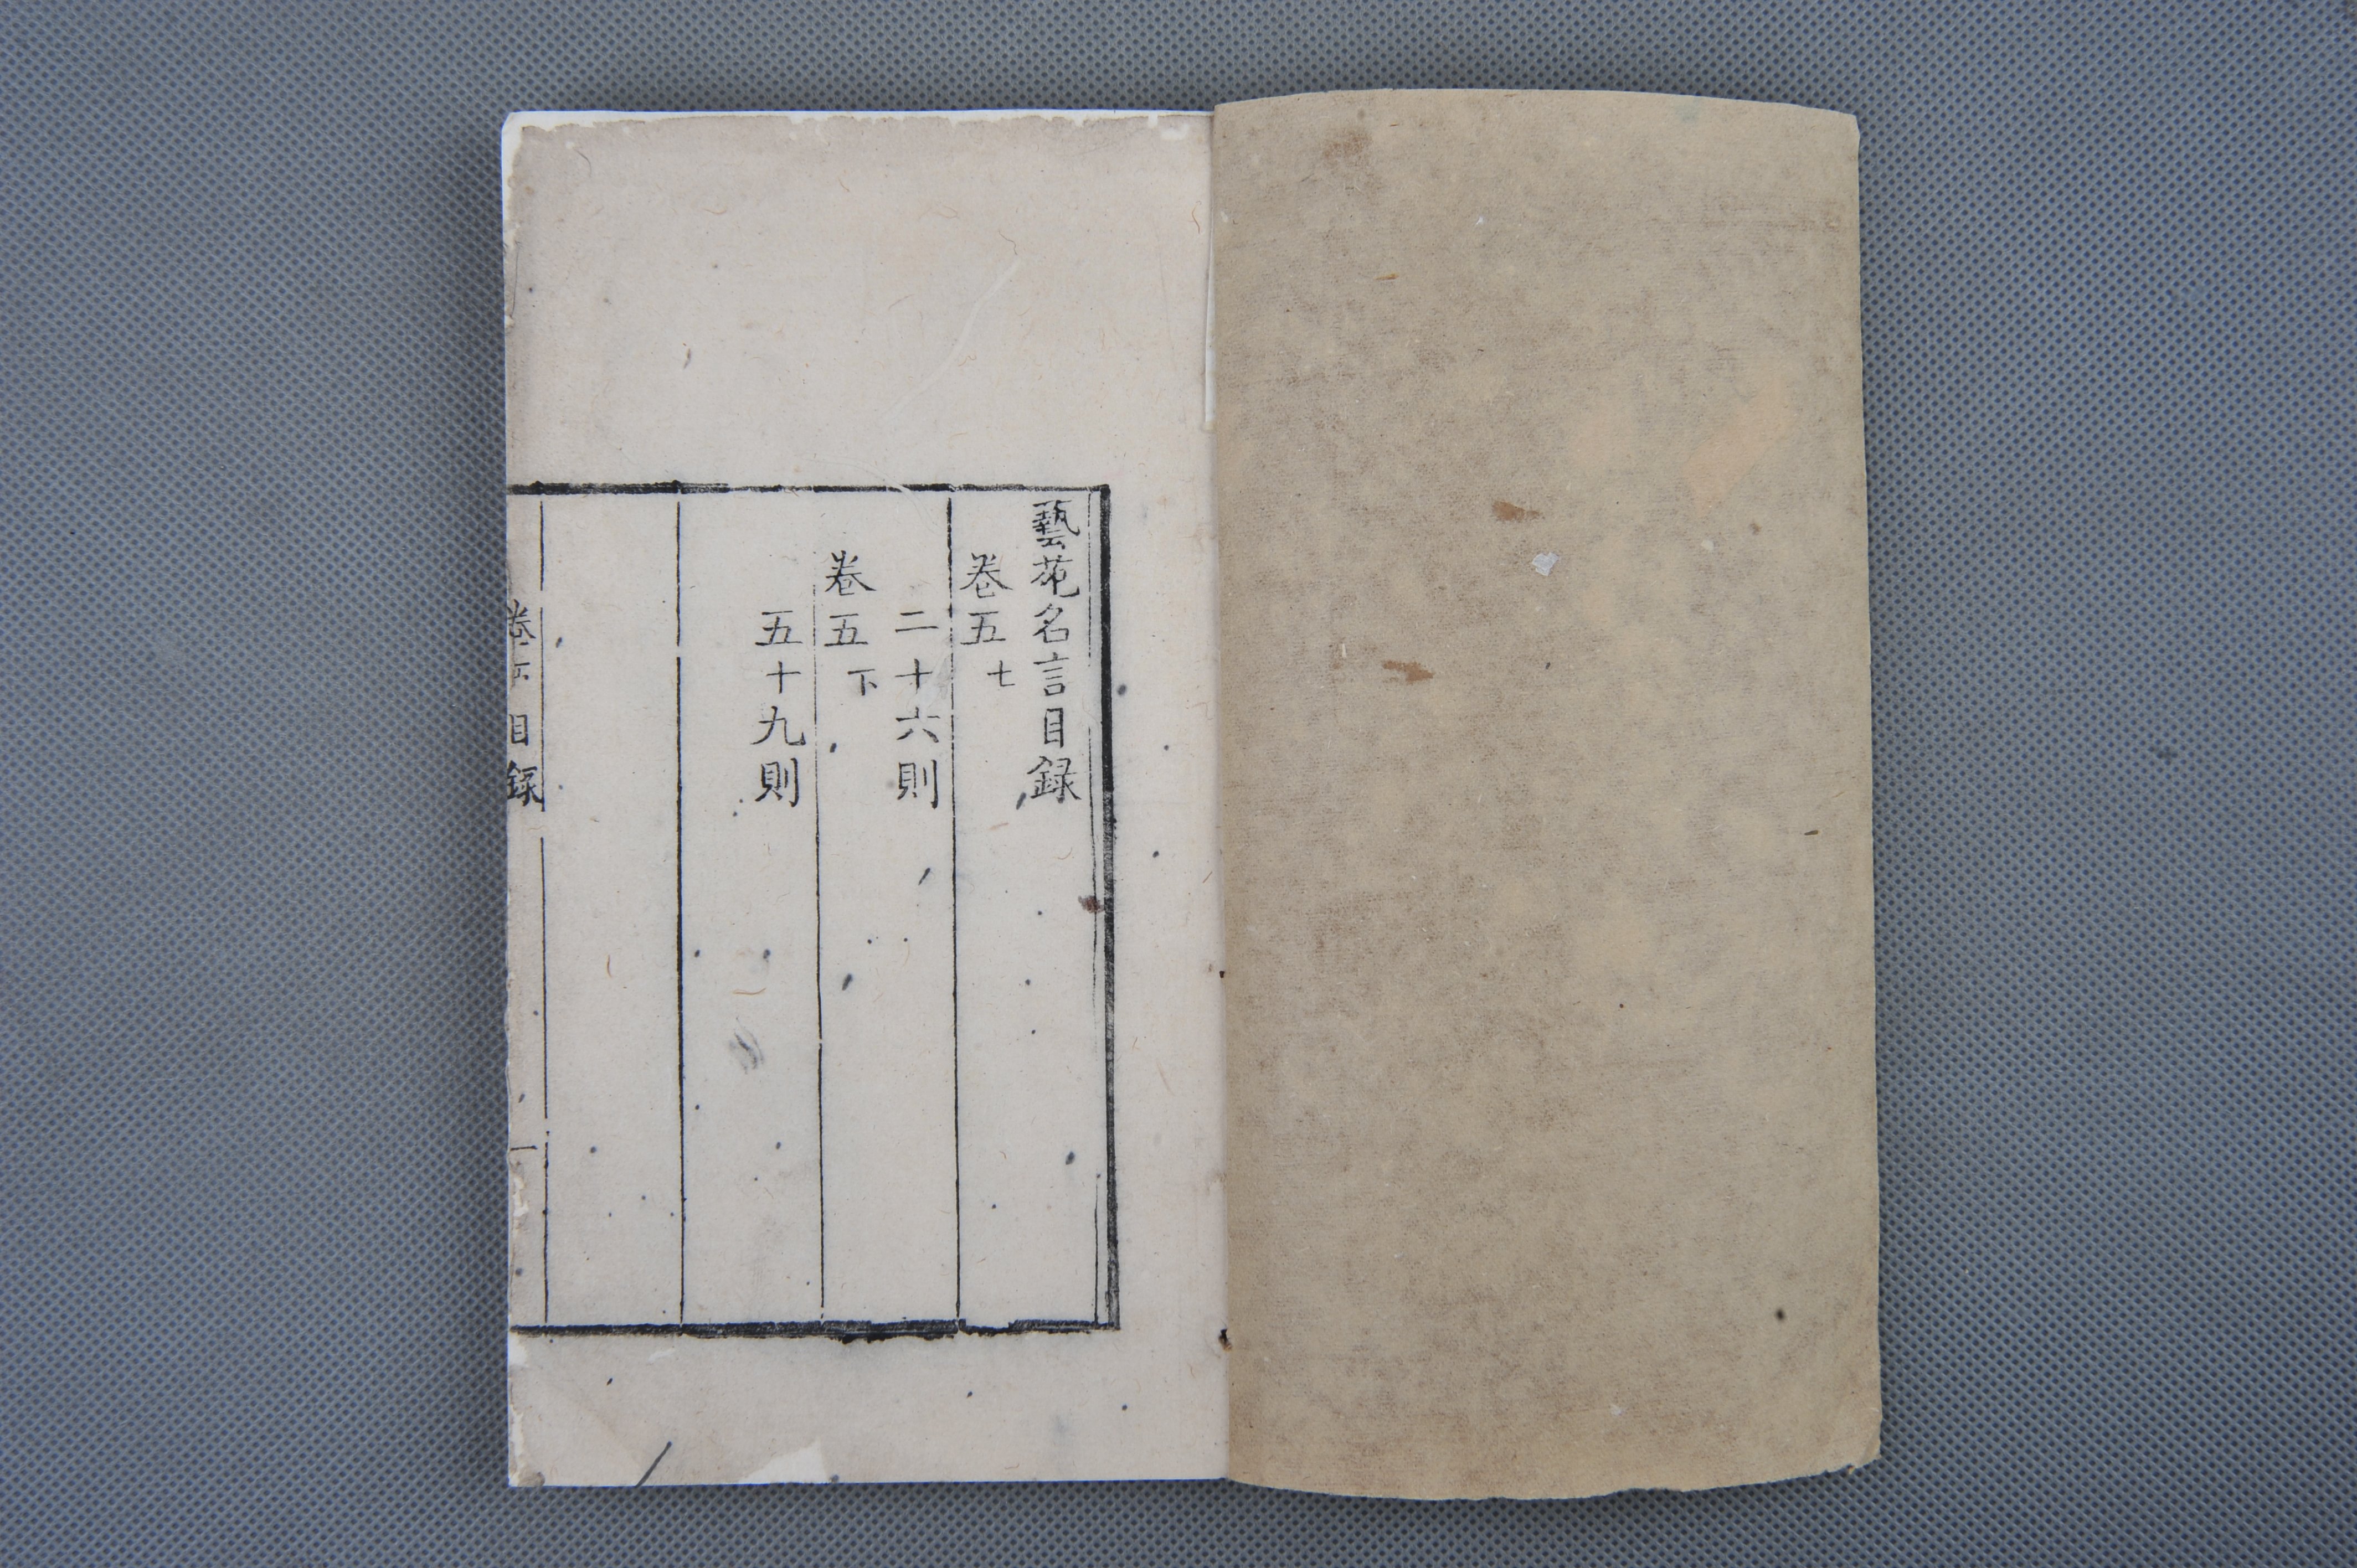 藝苑名言目録
卷五七
二十六則
卷五下
五十九則
卷五目録
一